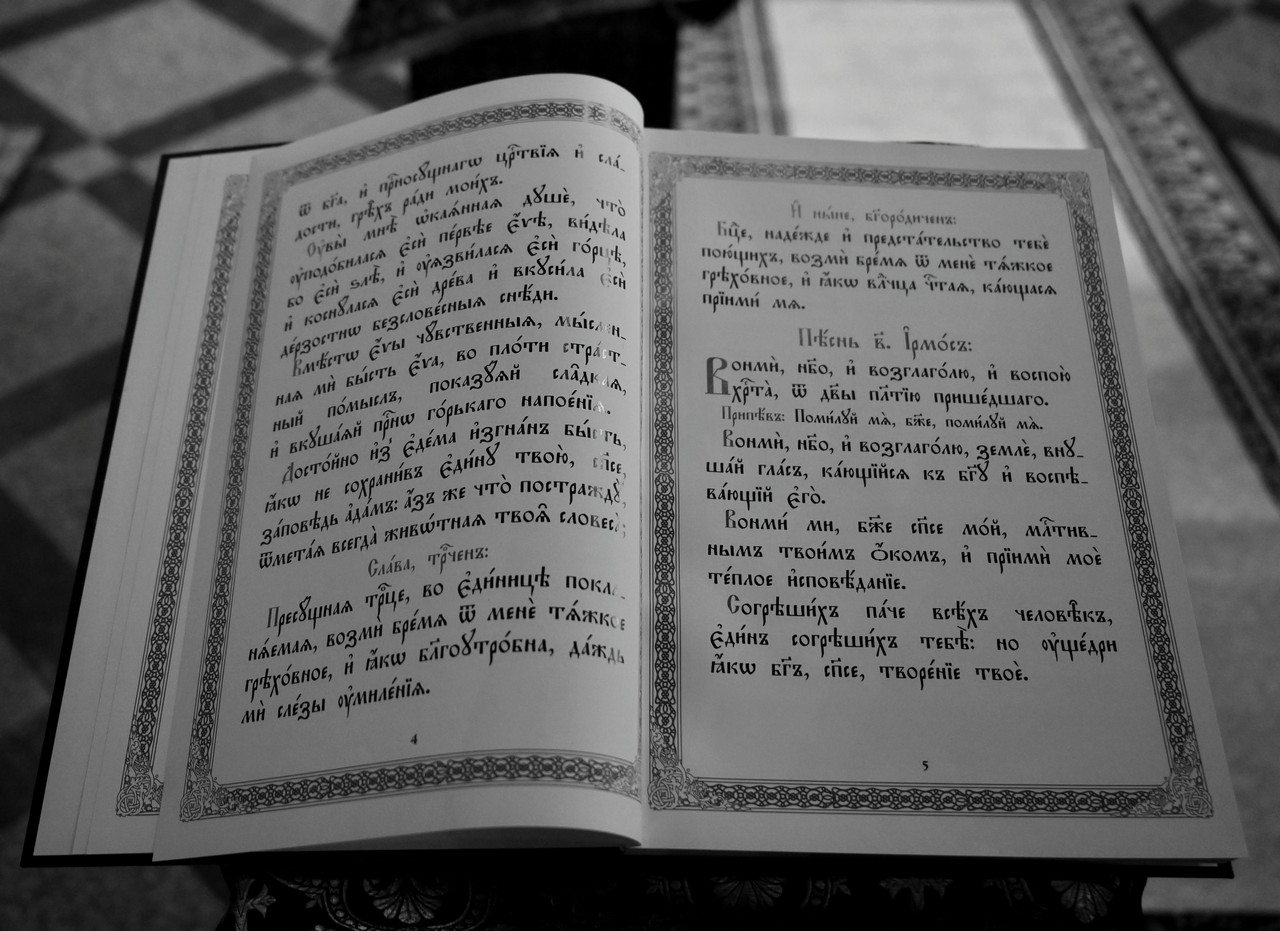 ѿ бг҃а, и҆ прⷭ҇носꙋ́щнагѡ црⷭ҇твїѧ и҆ сла́-
дости, грѣ̑хъ ра́ди мои́хъ.
Оу҆вы̀ мнѣ̀ ѡ҆каѧ́ннаѧ дꙋшѐ, что̀
оу҆подо́биласѧ є҆сѝ пе́рвѣе є҆́ѵѣ, ви́дѣла
бо є҆сѝ ѕлѣ̀, и҆ оу҆ѧзви́ласѧ є҆сѝ го́рцѣ,
и҆ коснꙋ́ласѧ є҆сѝ дре́ва и҆ вкꙋси́ла є҆сѝ
де́рзостнѡ безслове́сныѧ снѣ́ди.
Вмѣ́стѡ є҆́ѵы чꙋ́вственныѧ, мы́слен-
наѧ мѝ бы́сть є҆́ѵа, во пло́ти стра́ст-
ный по́мыслъ, показꙋ́ѧй сла̑дкаѧ,
и҆ вкꙋша́ѧй прⷭ҇нѡ го́рькаго напое́нїѧ.
Досто́йно и҆з̾ є҆де́ма и҆згна́нъ бы́сть,
ꙗ҆́кѡ не сохрани́въ є҆ди́нꙋ твою̀, сп҃се,
за́повѣдь а҆да́мъ: а҆́зъ же что̀ постраждꙋ̀,
ѿмета́ѧ всегда̀ живѡ́тнаѧ твоѧ̑ словеса̀;
Сла́ва, трⷪ҇ченъ:
Пресꙋ́щнаѧ трⷪ҇це, во є҆ди́ницѣ покла-
нѧ́емаѧ, возмѝ бре́мѧ ѿ менѐ тѧ́жкое
грѣхо́вное, и҆ ꙗ҆́кѡ бл҃гоꙋтро́бна, да́ждь
мѝ сле́зы оу҆миле́нїѧ.
4
И҆ ны́не, бг҃оро́диченъ:
Бцⷣе, наде́жде и҆ предста́тельство тебѐ
пою́щихъ, возмѝ бре́мѧ ѿ менѐ тѧ́жкое
грѣхо́вное, и҆ ꙗ҆́кѡ влⷣчца чⷭ҇таѧ, ка́ющасѧ
прїимѝ мѧ.
Пѣ́снь в҃. І҆рмо́съ:
Вонмѝ, нб҃о, и҆ возглаго́лю, и҆ воспою̀
хрⷭ҇та̀, ѿ дв҃ы пло́тїю прише́дшаго.
Припѣ́въ: Поми́лꙋй мѧ̀, бж҃е, поми́лꙋй мѧ̀.
Вонмѝ, нб҃о, и҆ возглаго́лю, землѐ, внꙋ-
ша́й гла́съ, ка́ющїйсѧ къ бг҃ꙋ и҆ воспѣ-
ва́ющїй є҆го̀.
Вонми́ ми, бж҃е сп҃се мо́й, млⷭ҇тив-
нымъ твои́мъ ѻ҆́комъ, и҆ прїимѝ моѐ
те́плое и҆сповѣ́данїе.
Согрѣши́хъ па́че всѣ́хъ человѣ̑къ,
є҆ди́нъ согрѣши́хъ тебѣ̀: но оу҆ще́дри
ꙗ҆́кѡ бг҃ъ, сп҃се, творе́нїе твоѐ.
5